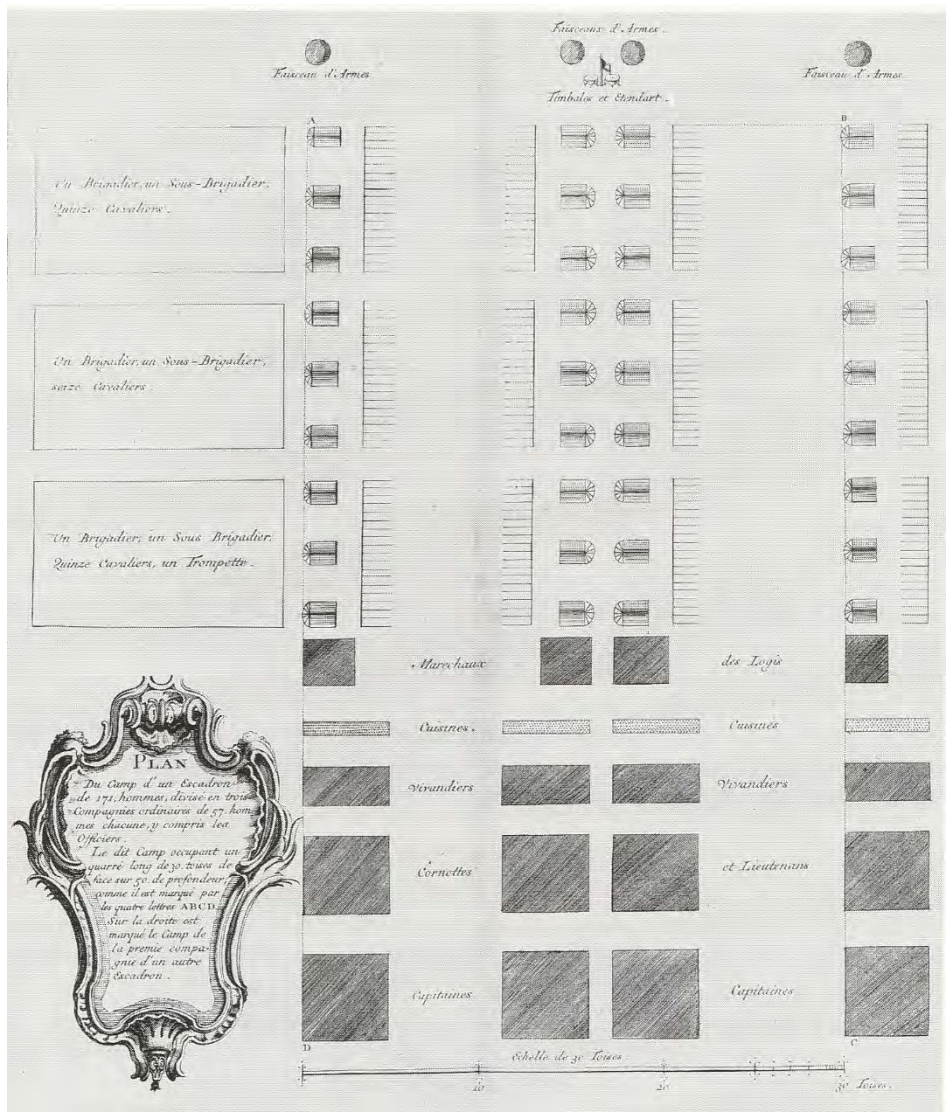 Faisceaux d'Armes.
Faisceau d'Armes
Faisceau d'Armes
Timbales et Etendart.
A
B
Un Brigadier, un Sous-Brigadier,
Quinze Cavaliers.
Un Brigadier, un Sous-Brigadier,
seize Cavaliers.
Un Brigadier, un Sous Brigadier,
Quinze Cavaliers, un Trompette.
Marechaux
des Logis
Cuisines.
Cuisines
Vivandiers
Vivandiers
Cornettes
et Lieutenans
Capitaines
Capitaines
PLAN
Du Camp d'un Escadron
de 171. hommes, divisé en trois
Compagnies ordinaires de 57. hom
mes chacune, y compris les
Officiers.
Le dit Camp occupant un
quarré long de 30. toises de
face sur 50. de profondeur,
comme il est marqué par
les quatre lettres ABCD.
Sur la drotte est
marqué le Camp de
la premie compa-
gnie d'un autre
Escadron.
D
C
Echelle de 30 Toises.
10
20
30 Toises.